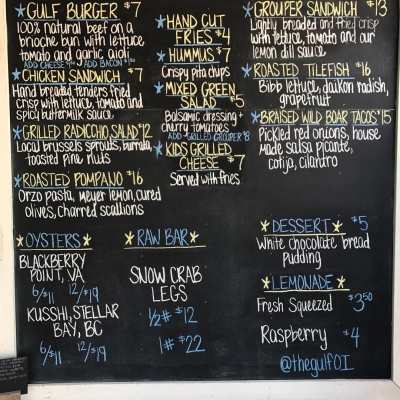 ★GULF BURGER $7
100% natural beef on a
brioche bun with lettuce
tomato and garlic aioli
ADD CHEESE ADD BACON
★CHICKEN SANDWICH $7
Hand breaded tenders fried
crisp with lettuce, tomato and
spicy buttermilk sauce
★GRILLED RADICCHIO SALAD $12
Local brussels sprouts, burrata,
toasted pine nuts
★ROASTED POMPANO $16
Orzo pasta, meyer lemon, cured
olives, charred scallions
★HAND CUT
FRIES $4
★HUMMUS $7
Crispy pita chips
★MIXED GREEN
SALAD $5
Balsamic dressing +
cherry tomatoes
ADD GRILLED GROUPER $8
★KIDS GRILLED
CHEESE $7
Served with fries
★GROUPER SANDWICH $13
Lightly breaded and fried crisp
with lettuce, tomato and our
lemon dill sauce
★ROASTED TILEFISH $16
Bibb lettuce, daikon radish,
grapefruit
★BRAISED WILD BOAR TACOS $15
Pickled red onions, house
made salsa picante,
cotija, cilantro
★OYSTERS★
BLACKBERRY
POINT, VA
6/$11 12/$19
KUSSHI, STELLAR
BAY, BC
6/$11 12/$19
★RAW BAR★
SNOW CRAB
LEGS
1/2# $12
1# $22
★DESSERT★ $5
White chocolate bread
pudding
★LEMONADE★
Fresh Squeezed $3.50
Raspberry $4
@thegulfOI